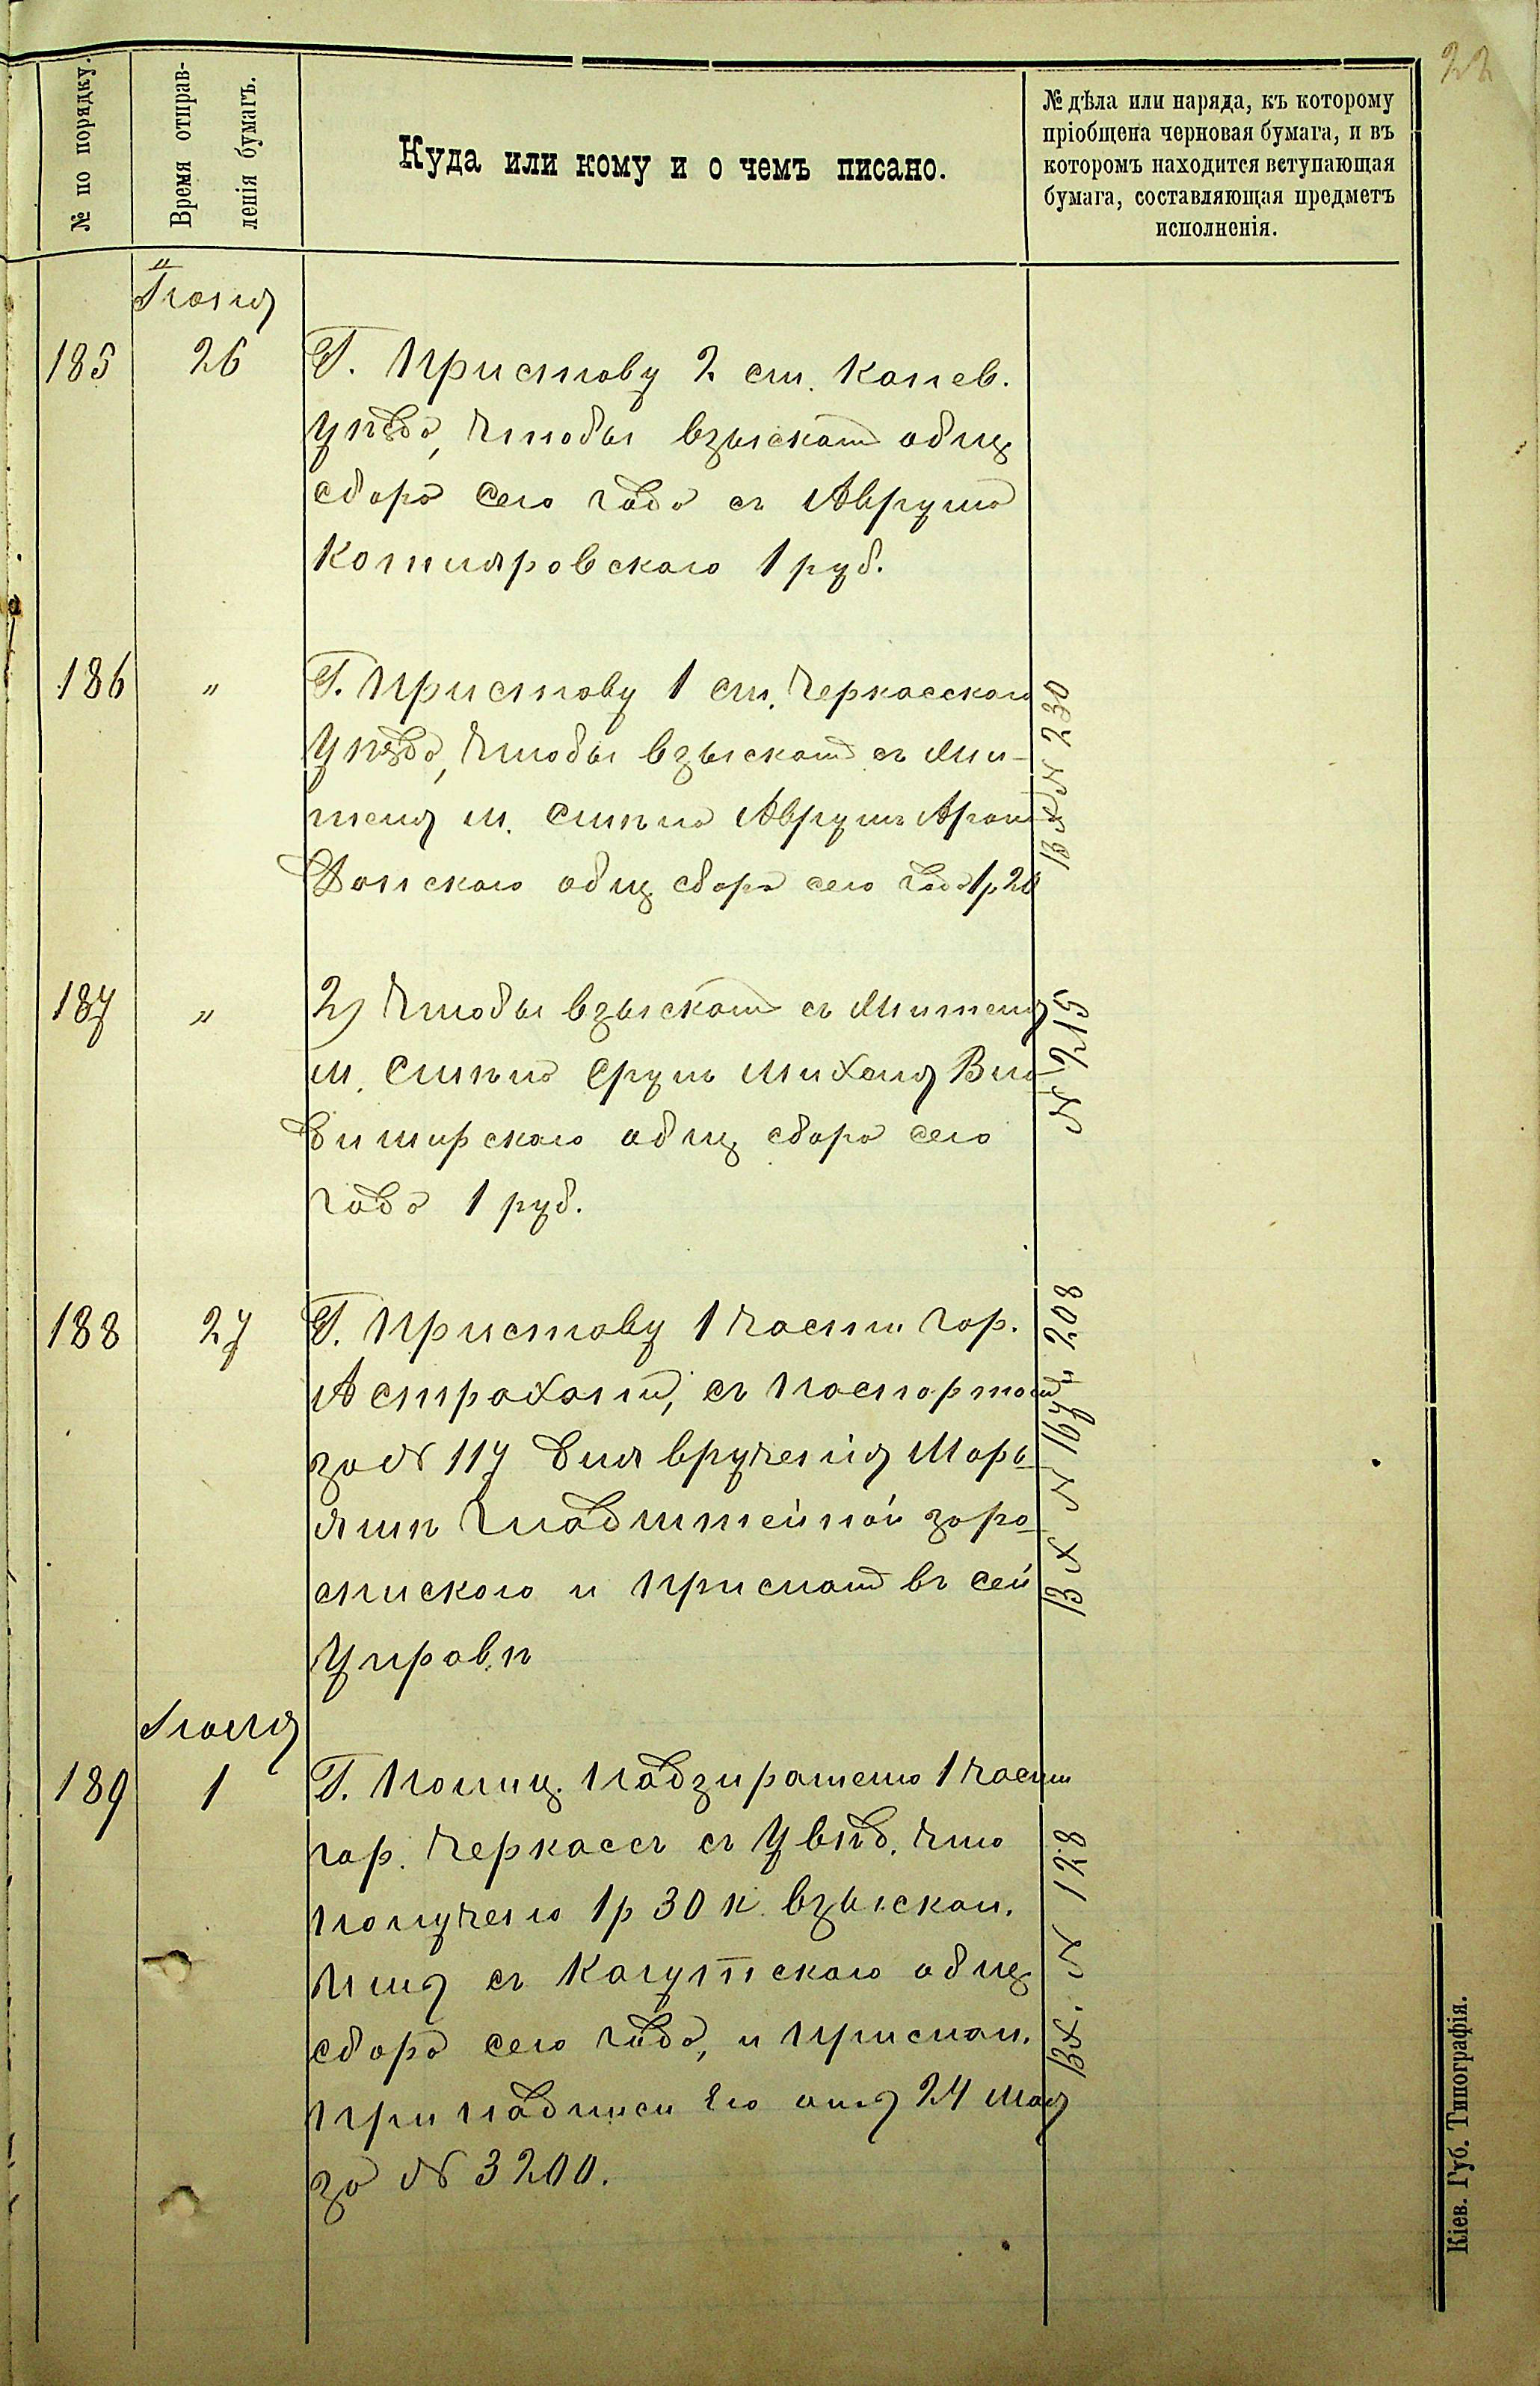 22
№ по порядку.
Время отправ-
ленія бумагъ.
Куда или кому и о чемъ писано.
№ дѣла или наряда, къ которому
пріобщена черновая бумага, и въ
которомъ находится вступающая
бумага, составляющая предметъ
исполненія.
Іюня
185 26 Г. Приставу 2 ст. Канев.
уѣзда, чтобы взыскать общ
сбора сего года съ Аврума
Котляровскаго 1 руб.
186 " Г. Приставу 1 ст. Черкасскаго
уѣзда, чтобы взыскать съ жи-
теля м. Смѣла Аврумъ Арона
Донскаго общ сбора сего года 1 р 20
Вх № 230
187 " 2) чтобы взыскать съ жителя
м. Смѣла Срулъ Михеля Вла
димирскаго общ сбора сего
года 1 руб.
№ 215
188 27 Г. Приставу 1 части гор.
Астрахани, съ паспортомъ
за № 117 для врученія Марь
ямѣ
и прислать въ сей
управѣ
Вх № 167 и 208
Іюля
189 1 Г. Полиц. надзирателю 1 части
гор. Черкассъ съ увѣд. что
получено 1 р 30 к. взыскан.
имя съ Когутскаго общ
сбора сего года, и прислан.
при надписи его отъ 24 мая
за № 3200.
Вх. № 128
Кіев. Губ. Типографія.